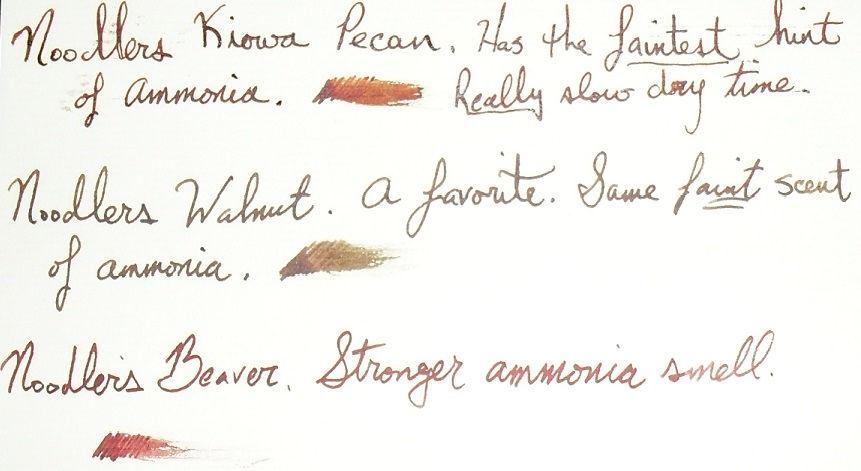 Noodlers Kiowa Pecan. Has the faintest hint
of ammonia. Really slow dry time.
Noodlers Walnut. A favorite. Same faint scent
of ammonia.
Noodler's Beaver. Stronger ammonia smell.